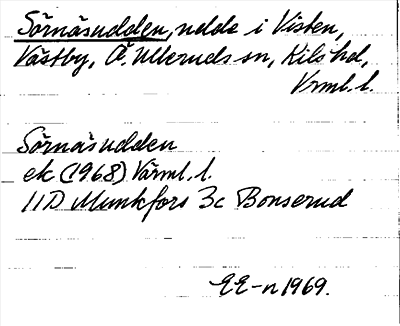 Sörnäsudden, udde i Visten,
Västby, Ö. Ulleruds sn, Kils hd,
Vrml. l.
Sörnäsudden
ek (1968) Värml. l.
11D Munkfors 3c Bonserud
EE-n 1969.